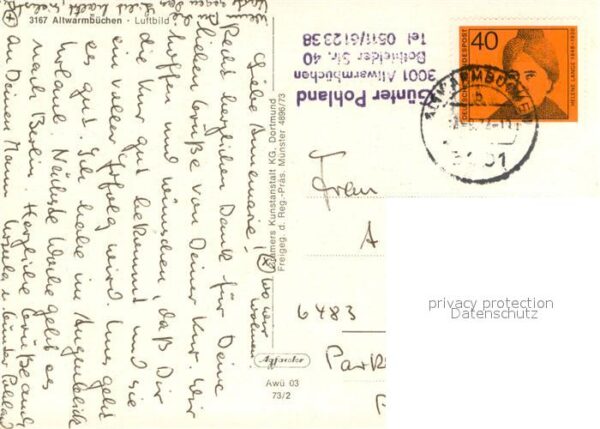 3167 Altwarmbüchen - Luftbild
Liebe Annemarie!
Recht herzlichen Dank für Deine
lieben Grüße von Deiner Kur. Wir
hoffen und wünschen, daß Dir
die Kur gut bekommt und sie
ein voller Erfolg wird. Uns geht
es gut. Ich habe im Augenblick
Urlaub. Nächste Woche geht es
nach Berlin. Herzliche Grüße auch
an Deinen Mann Ursula u. Günter Pohland
wo wir
wohnen
Cramers Kunstanstalt KG, Dortmund
Freigeg. d. Reg.-Präs. Münster 4896/73
Agfacolor
Awü 03
73/2
Günter Pohland
3001 Altwarmbüchen
Bothfelder Str. 40
Tel 0511/612338
40
DEUTSCHE BUNDESPOST
HELENE LANGE 1848-1930
ALTWARMBÜCHEN
3001
Frau
A
6483
Park
privacy protection
Datenschutz